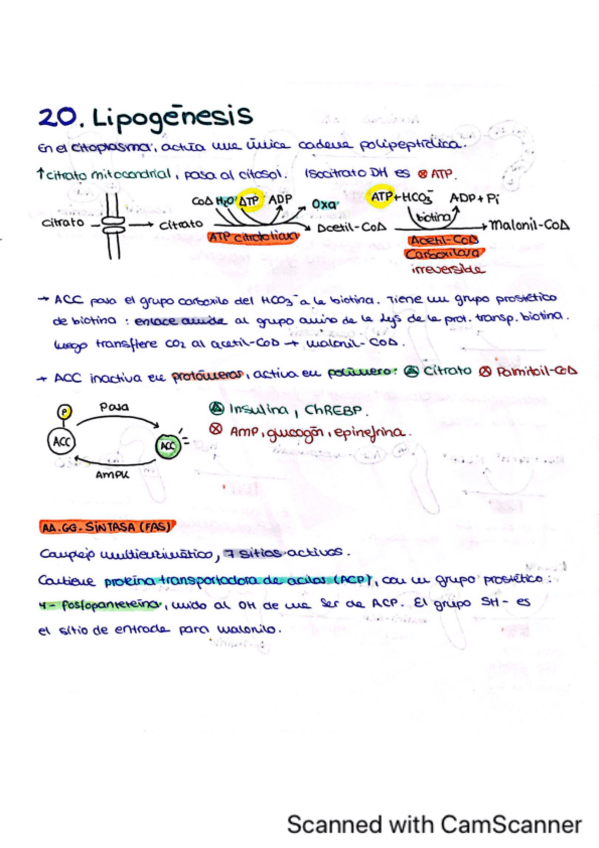 20. Lipogénesis
En el citoplasma, actúa una única cadena polipeptídica.
↑citrato mitocondrial, pasa al citosol. Isocitrato DH es ⊗ ATP.
CoA H₂O ATP ADP Oxa ATP+HCO₃⁻ ADP+Pi
citrato → citrato → Acetil-CoA biotina → Malonil-CoA
ATP citratoliasa Acetil-CoA
Carboxilasa
irreversible
→ ACC pasa el grupo carboxilo del HCO₃⁻ a la biotina. Tiene un grupo prostético
de biotina: enlace amida al grupo amino de la Lys de la prot. transp. biotina.
Luego transfiere CO₂ al acetil-CoA → malonil-CoA.
→ ACC inactiva en protómeros, activa en polímero: Ⓐ Citrato ⊗ Palmitoil-CoA
P Pasa Ⓐ Insulina, ChREBP.
ACC ACC ⊗ AMP, glucagón, epinefrina.
AMPK
AA.GG-SINTASA (FAS)
Complejo multienzimático, 7 sitios activos.
Contiene proteína transportadora de acilos (ACP), con un grupo prostético:
4-fosfopanteteína, unido al OH de una Ser de ACP. El grupo SH- es
el sitio de entrada para malonilo.
Scanned with CamScanner